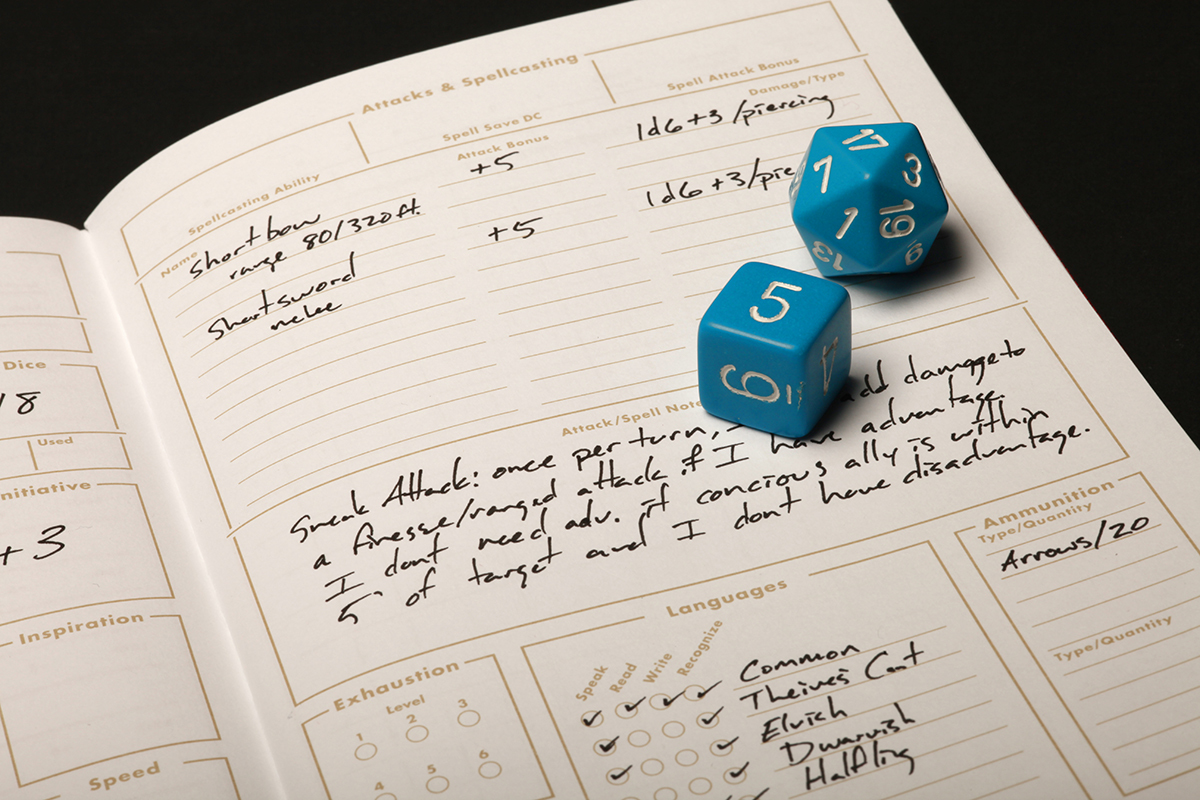 Attacks & Spellcasting
Spellcasting Ability
Spell Save DC
Spell Attack Bonus
Name
Attack Bonus
Damage/Type
Shortbow +5 1d6+3/piercing
range 80/320 ft.
Shortsword +5 1d6+3/pie
melee
17
7
3
1
19
13
9
5
6
4
Attack/Spell Note
Sneak Attack: once per turn, add damage to
a finesse/ranged attack if I have advantage.
I dont need adv. if concious ally is within
5' of target and I dont have disadvantage.
Dice
8
Used
nitiative
+3
Inspiration
Speed
Exhaustion
Level
1 2 3
4 5 6
Languages
Speak Read Write Recognize
Common
Theives Cant
Elvish
Dwarvish
Halfling
Ammunition
Type/Quantity
Arrows/20
Type/Quantity